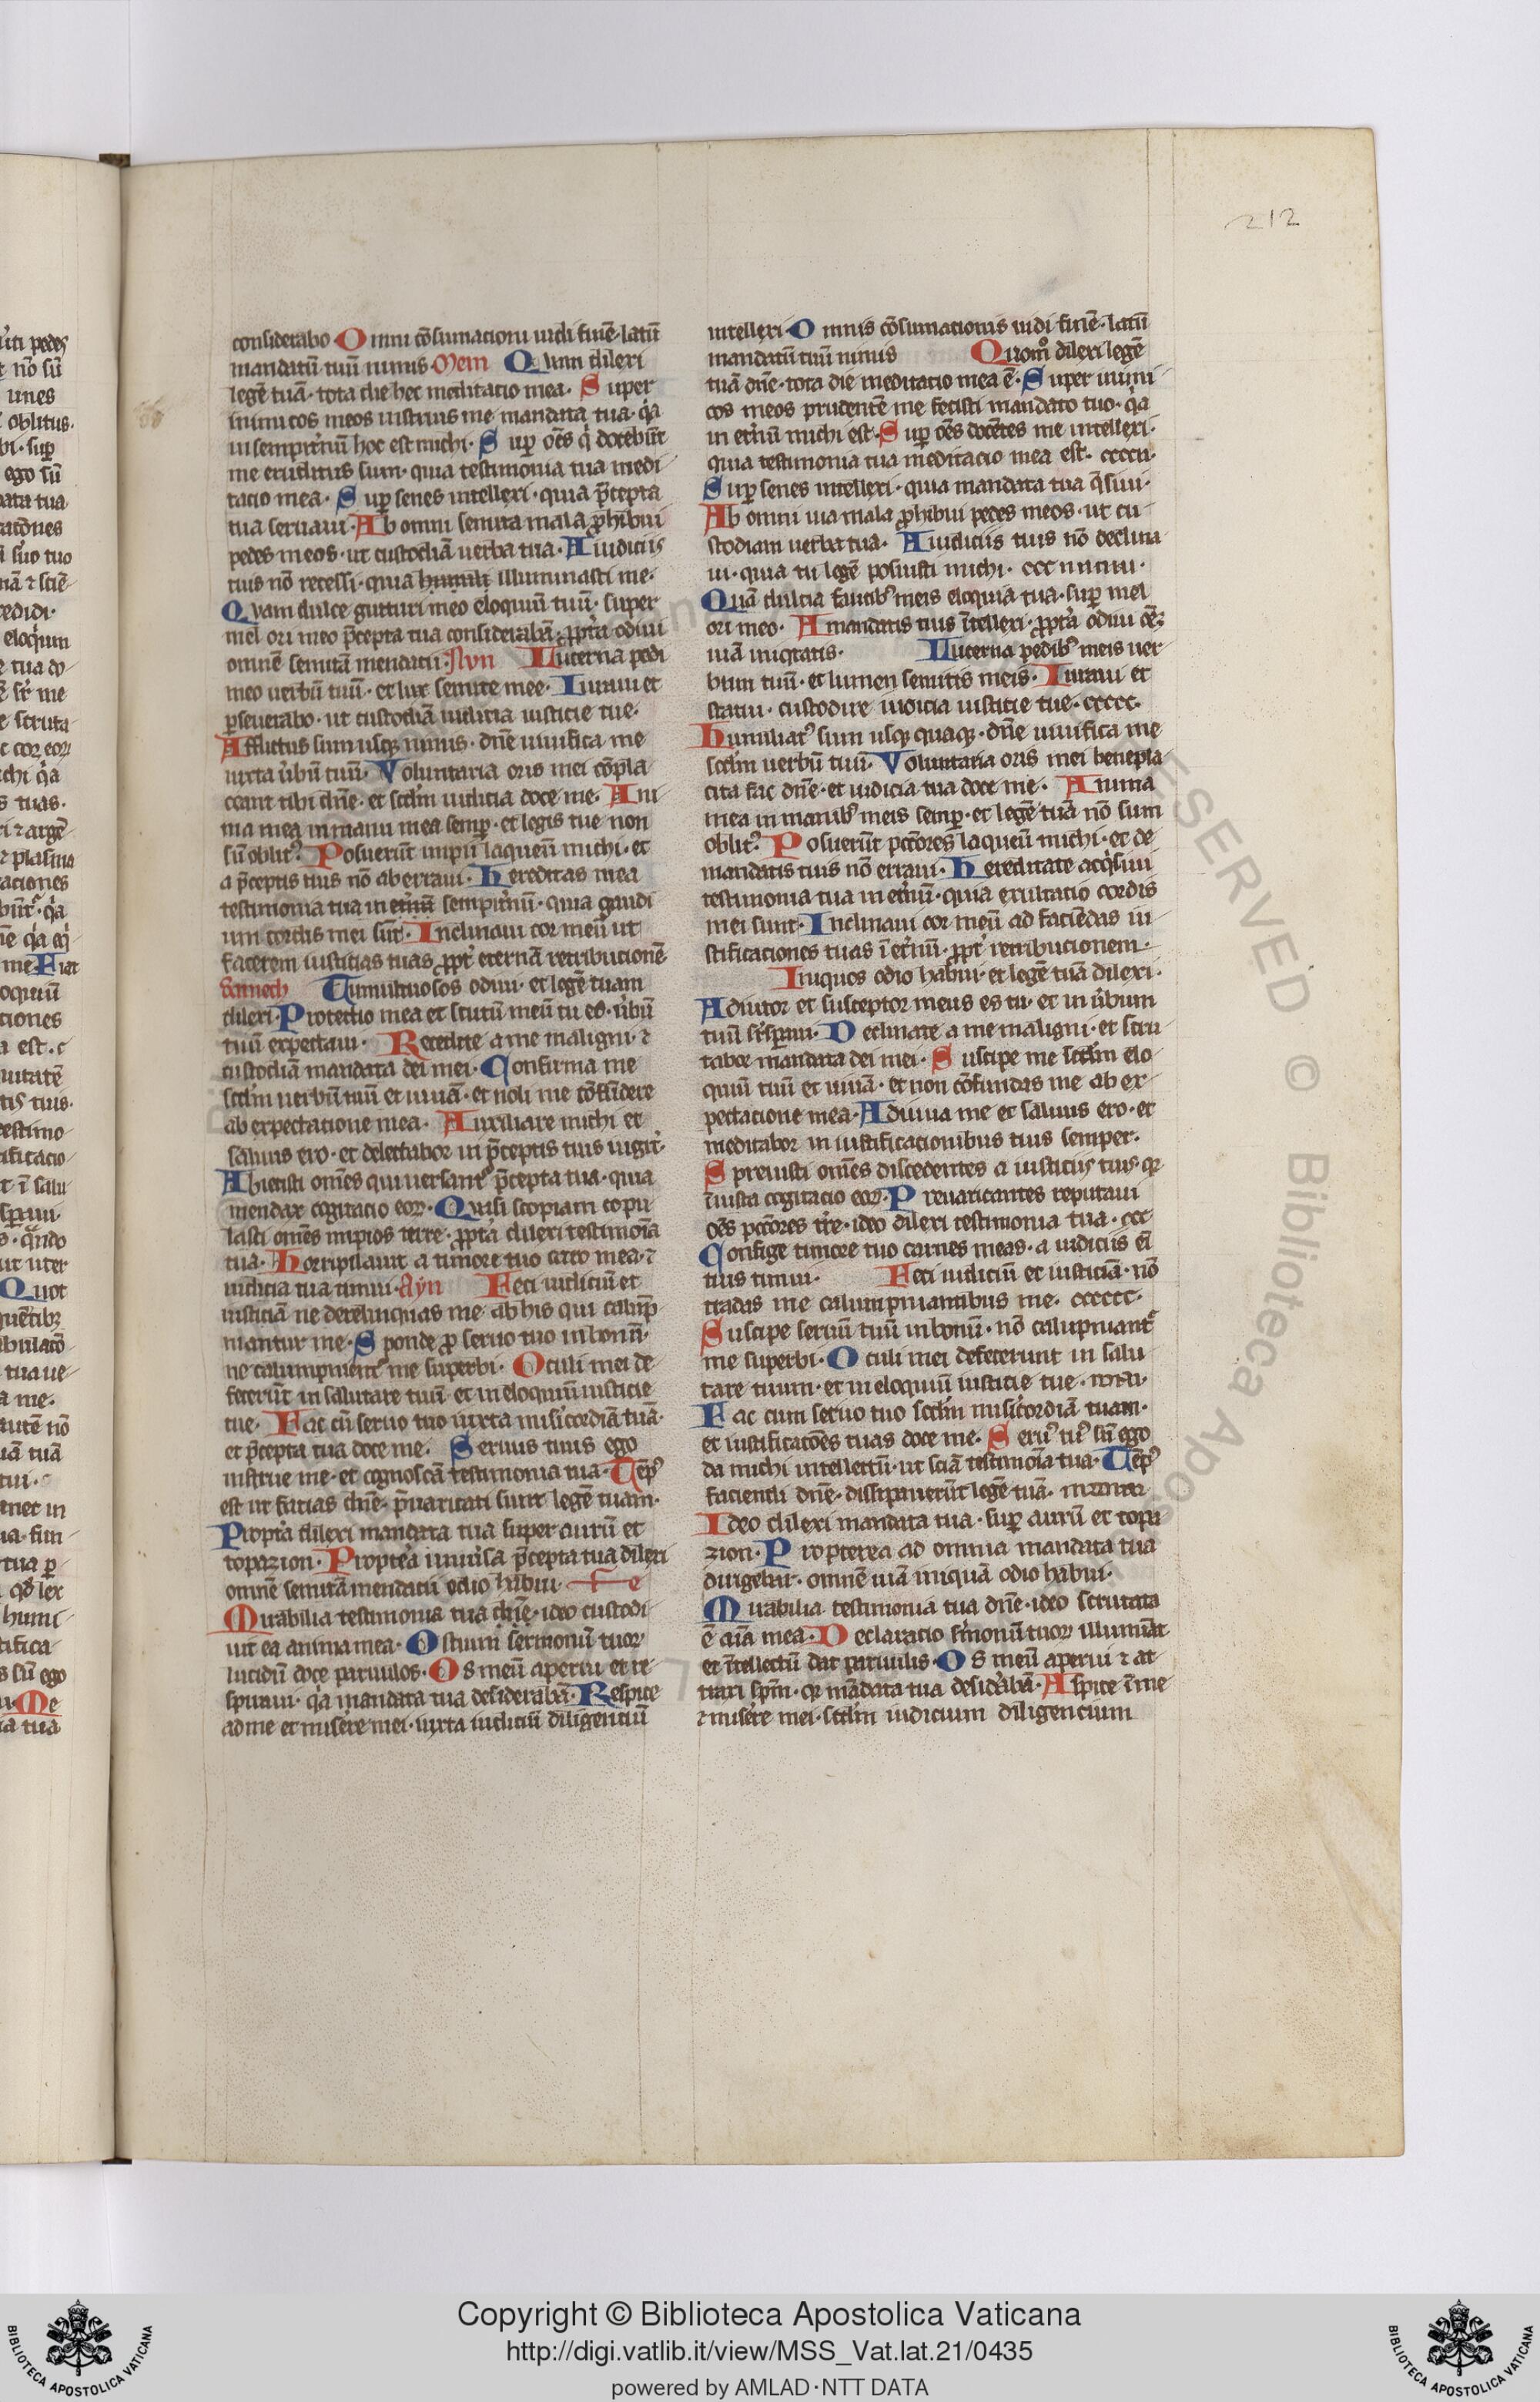 212
considerabo· Omni cōsumacioni uidi finē· latū
mandatū tuū nimis· Mem Quam dilexi
legē tuā· tota die hec meditacio mea· Super
inimicos meos instruis me mandata tua· q̇a
in sempit̓nū hoc est michi· Suꝑ oēs q̇ docebūt
me eruditus sum· quia testimonia tua medi
tacio mea· Suꝑ senes intellexi· quia p̄cepta
tua seruaui· Ab omni semita mala ꝓhibui
pedes meos· ut custodiā uerba tua· A iudiciis
tuis nō recessi· quia illuminasti me·
Quam dulce gutturi meo eloquiū tuū· super
mel ori meo p̄cepta tua considerabā· ꝓpt̓a odiui
omnē semitā mendacii· Nvn Lucerna pedi
meo uerbū tuū· et lux semite mee· Iuraui et
ꝑseuerabo· ut custodiā iudicia iusticie tue·
Afflictus sum usqꝫ nimis· dn̄e uiuifica me
iuxta u̓bū tuū· Voluntaria oris mei cōpla
ceant tibi dn̄e· et scd̄m iudicia doce me· Ani
ma mea in manu mea semꝑ· et legis tue non
sū oblitꝰ· Posuerūt impii laqueū michi· et
a p̄ceptis tuis nō aberraui· Hereditas mea
testimonia tua in sempit̓nū· quia gaudi
um cordis mei sūt· Inclinaui cor meū ut
facerem iusticias tuas ꝓpt̓ eternā retribucionē
Samech Tumultuosos odiui· et legē tuam
dilexi· Protectio mea et scutū meū tu es· u̓bū
tuū expectaui· Recedite a me maligni· ⁊
custodiā mandata dei mei· Confirma me
scd̄m uerbū tuū et uiuā· et noli me cōfūdere
ab expectatione mea· Auxiliare michi et
saluus ero· et delectabor in p̄ceptis tuis iugit̓·
Abiecisti omēs qui uersantᷣ p̄cepta tua· quia
mendax cogitacio eoꝝ· Quasi scoriam copu
lasti omēs impios terre· ꝓpt̓a dilexi testimoīa
tua· Horripilauit a timore tuo caro mea· ⁊
iudicia tua timui· Ayn Feci iudiciū et
iusticiā ne derelinquas me ab his qui calūp̄
niantur me· Sponde ꝓ seruo tuo in bonū·
ne calumpnientᷣ me superbi· Oculi mei de
fecerūt in salutare tuū· et in eloquiū iusticie
tue· Fac cū seruo tuo iuxta mis̓icordiā tuā·
et p̄cepta tua doce me· Seruus tuus ego
instrue me· et cognoscā testimonia tua· Tēpꝰ
est ut facias dn̄e· p̄uaricati sunt legē tuam·
Propt̓a dilexi mandata tua super aurū et
topazion· Propt̓ea uniu̓sa p̄cepta tua dilexi
omnē semitā mendacii odio habui· Fe
Mirabilia testimonia tua dn̄e· ideo custodi
uit ea anima mea· Ostium sermonū tuoꝝ
lucidū doce paruulos· Os meū aperui et re
spiraui· q̇a mandata tua desiderabā· Respice
ad me et miserere mei· iuxta iudiciū diligenciū
intellexi· Omnis cōsumacionis uidi finē· latū
mandatū tuū nimis Quomᵒ dilexi legē
tuā dn̄e· tota die meditacio mea ē· Super inimi
cos meos prudentē me fecisti mandato tuo· q̇a
in et̓nū michi est· Suꝑ oēs docētes me intellexi·
quia testimonia tua meditacio mea est· ccccii·
Suꝑ senes intellexi· quia mandata tua q̄siui·
Ab omni uia mala ꝓhibui pedes meos· ut cu
stodiam uerba tua· A iudiciis tuis nō declina
ui· quia tu legē posuisti michi·
Quā dulcia faucibꝰ meis eloquia tua· suꝑ mel
ori meo· A mandatis tuis ītellexi· ꝓpt̓a odiui oēꝫ
uiā iniq̇tatis· Lucerna pedibꝰ meis uer
bum tuū· et lumen semitis meis· Iuraui et
statui· custodire iudicia iusticie tue· ccccc·
Humiliatꝰ sum usqꝫ quaqꝫ· dn̄e uiuifica me
scd̄m uerbū tuū· Voluntaria oris mei benepla
cita fac dn̄e· et iudicia tua doce me· Anima
mea in manibꝰ meis semꝑ· et legē tuā nō sum
oblitꝰ· Posuerūt pctōres laqueū michi· et de
mandatis tuis nō erraui· Hereditate acq̇siui
testimonia tua in et̓nū· quia exultatio cordis
mei sunt· Inclinaui cor meū ad faciēdas iu
stificaciones tuas ī et̓nū· ꝓpt̓ retribucionem·
Iniquos odio habui· et legē tuā dilexi·
Adiutor et susceptor meus es tu· et in u̓bum
tuū su̓sꝑaui· Declinate a me maligni· et scru
tabor mandata dei mei· Suscipe me scd̄m elo
quiū tuū et uiuā· et non cōfundas me ab ex
pectacione mea· Adiuua me et saluus ero· et
meditabor in iustificacionibus tuis semper·
Spreuisti omēs discedentes a iusticiis tuis· qꝛ
īiusta cogitacio eoꝝ· Preuaricantes reputaui
oēs pctōres tr̄e· ideo dilexi testimonia tua· ccc
Confige timore tuo carnes meas· a iudiciis eī
tuis timui· Feci iudiciū et iusticiā· nō
tradas me calumpniantibus me· cccccc·
Suscipe seruū tuū in bonū· nō calupniantᷣ
me superbi· Oculi mei defecerunt in salu
tare tuum· et in eloquiū iusticie tue·
Fac cum seruo tuo scd̄m mis̓icordiā tuam·
et iustificatōes tuas doce me· Seruꝰ tuꝰ sū ego
da michi intellectū· ut sciā testimoīa tua· Tēpꝰ
faciendi dn̄e· dissipauerūt legē tuā·
Ideo dilexi mandata tua· suꝑ aurū et topa
zion· Propterea ad omnia mandata tua
dirigebar· omnē uiā iniquā odio habui·
Mirabilia testimonia tua dn̄e· ideo scrutata
ē aīa mea· Declaracio s̓monū tuoꝝ illumīat
et ītellectū dat paruulis· Os meū aperui ⁊ at
traxi sp̄m· qꝛ mādata tua desid̓abā· Aspice ī me
⁊ miserere mei· scd̄m iudicium diligencium
Copyright © Biblioteca Apostolica Vaticana
http://digi.vatlib.it/view/MSS_Vat.lat.21/0435
powered by AMLAD·NTT DATA